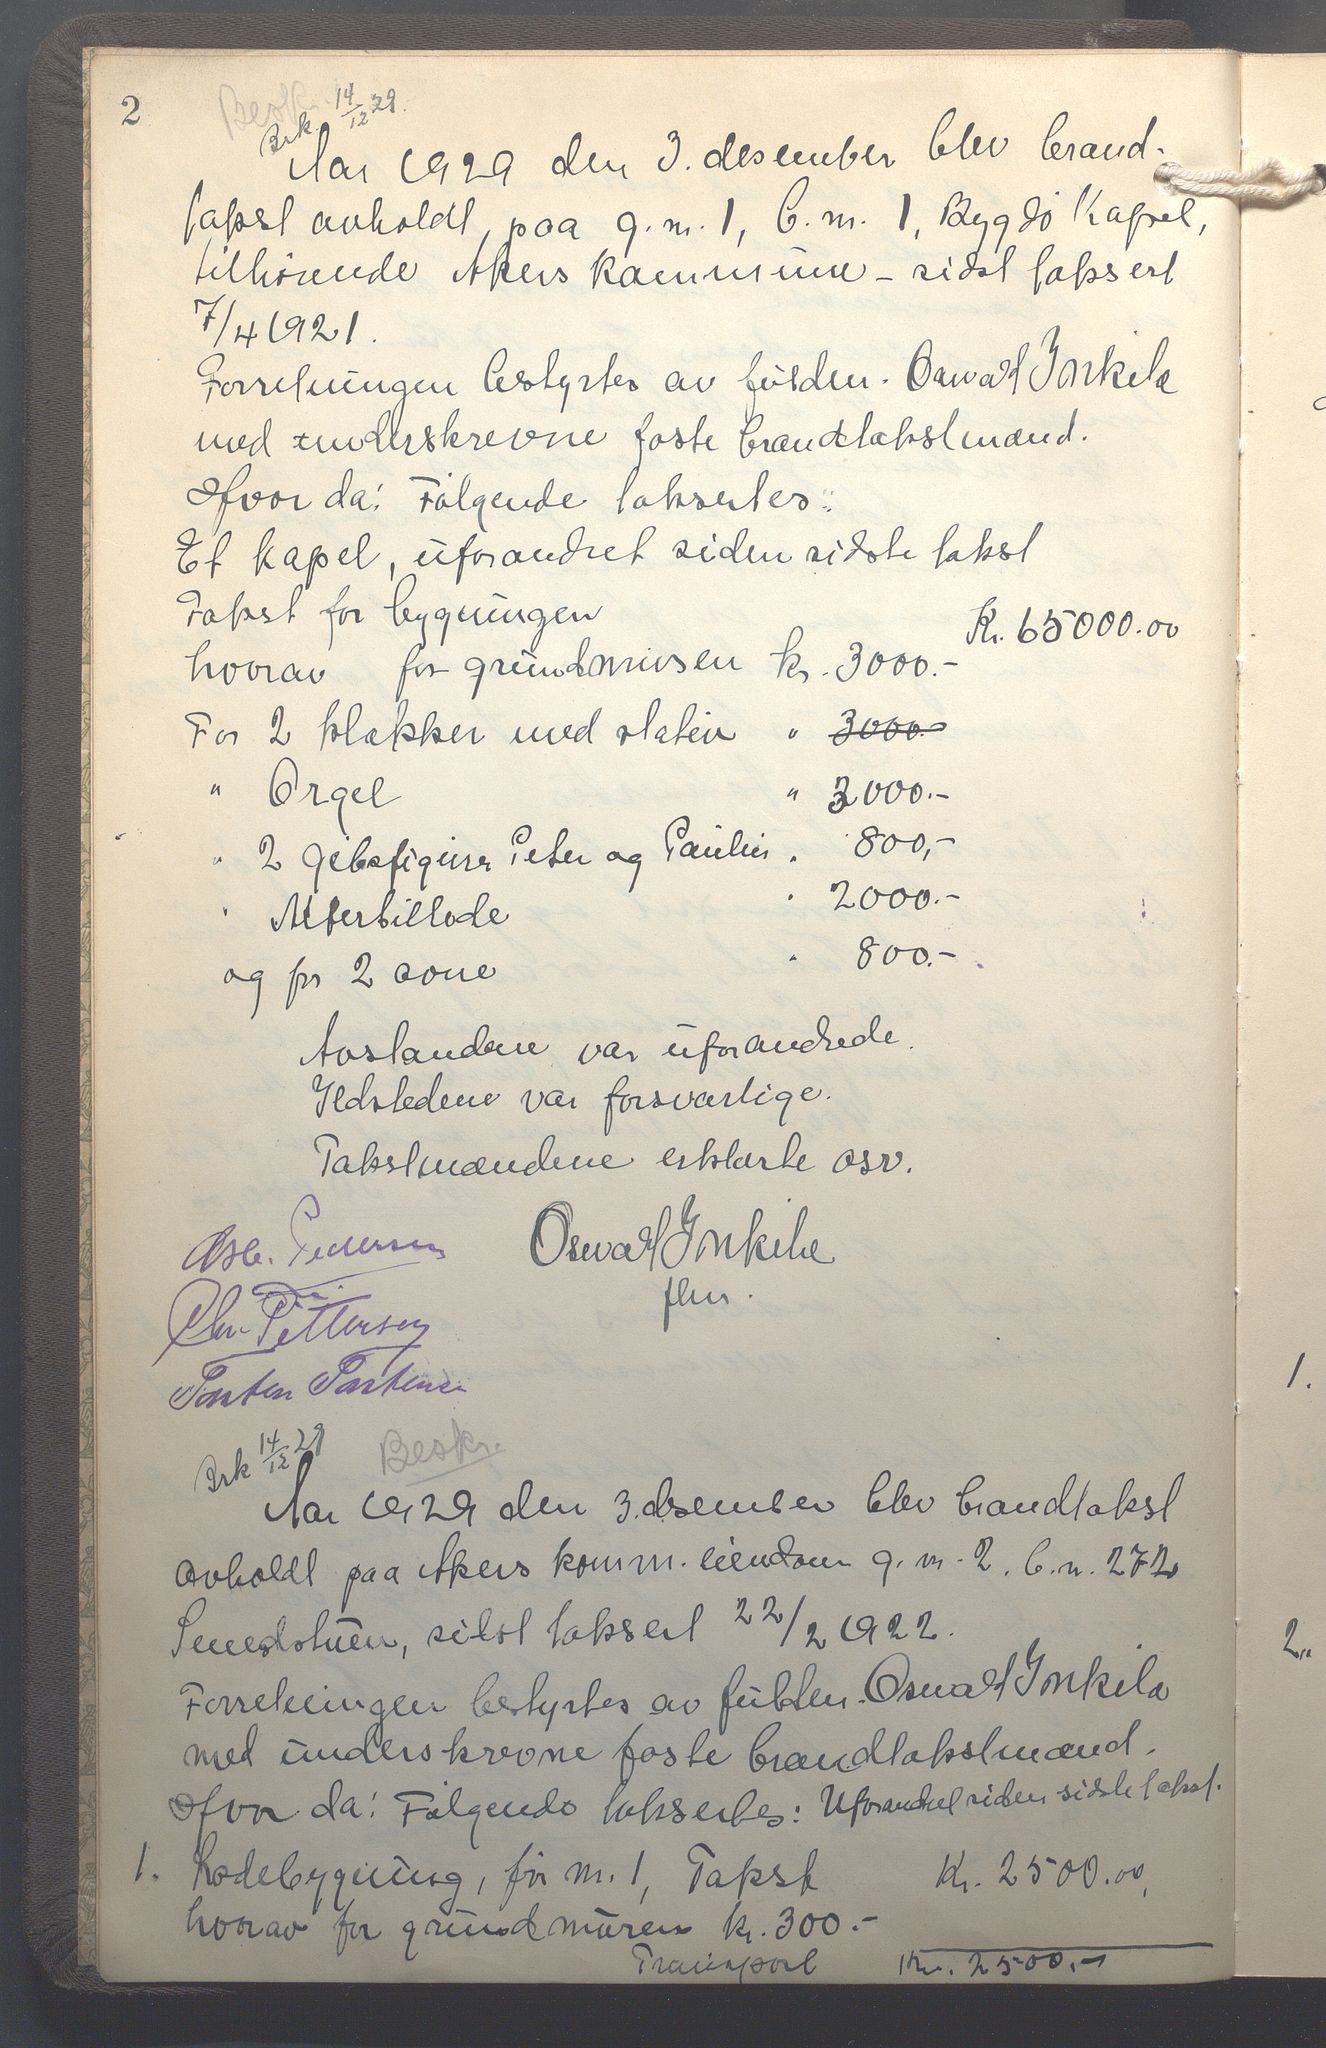 2
Beskr.
Brk. 14/12 29.
Aar 1929 den 3. desember blev brand-
takst avholdt paa g.nr. 1, b.nr. 1, Bygdø Kapel,
tilhørende Akers kommune - sidst taksert
7/4 1921.
Forretningen bestyrtes av fuldm. Oswald Inkila
med underskrevne faste brandtakstmænd.
Hvor da: Følgende taksertes:
Et kapel, uforandret siden sidste takst
Takst for bygningen Kr. 65000.00
hvorav for grundmuren kr. 3000.-
For 2 klokker med statin " 3000.-
" Orgel " 3000.-
" 2 gibsfigurer Peter og Paulus " 800,-
" Alterbillede " 2000.-
og for 2 ovne " 800.-
Avstandene var uforandrede.
Ildstedene var forsvarlige.
Takstmændene erklærte osv.
Asb. Pedersen Oswald Inkila
fm.
Chr. Pettersen
Torsten Torstensen
Brk 14/12 29 Beskr.
Aar 1929 den 3. desember blev brandtakst
avholdt paa Akers komm. eiendom g.nr. 2, b.n. 272
Smestuen, sidst taksert 22/2 1922.
Forretningen bestyrtes av fuldm. Oswald Inkila
med underskrevne faste brandtakstmænd.
Hvor da: Følgende taksertes: Uforandret siden sidste takst.
1. Ladebygning, før nr. 1, Takst Kr. 2500.00,
hvorav for grundmuren kr. 300.-
Transport Kr. 2500.-
1.
2.